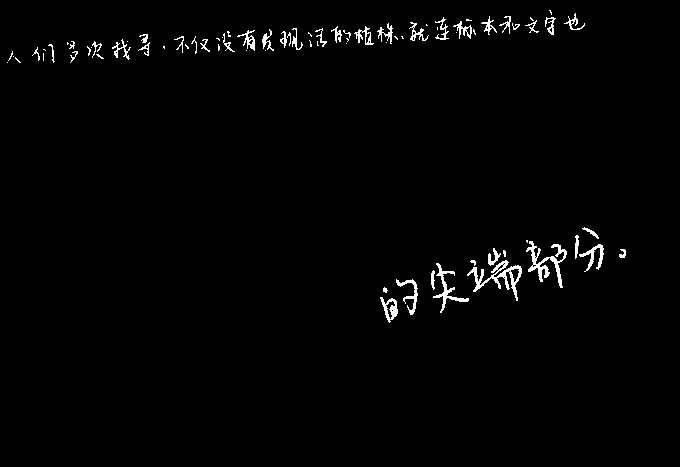 人们多次找寻,不仅没有发现活的植株,就连标本和文字也
的尖端部分。